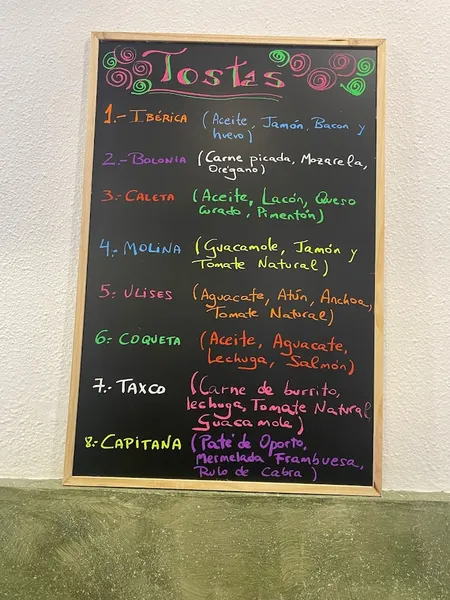 Tostas
1.- IBÉRICA (Aceite, Jamón, Bacon y
huevo)
2.- BOLONIA (Carne picada, Mozarela,
Orégano)
3.- CALETA (Aceite, Lacón, Queso
Curado, Pimentón)
4.- MOLINA (Guacamole, Jamón y
Tomate Natural)
5.- ULISES (Aguacate, Atún, Anchoa,
Tomate Natural)
6.- COQUETA (Aceite, Aguacate,
Lechuga, Salmón)
7.- TAXCO (Carne de burrito,
lechuga, Tomate Natural,
Guacamole)
8.- CAPITANA (Paté de Oporto,
Mermelada Frambuesa,
Rulo de Cabra)